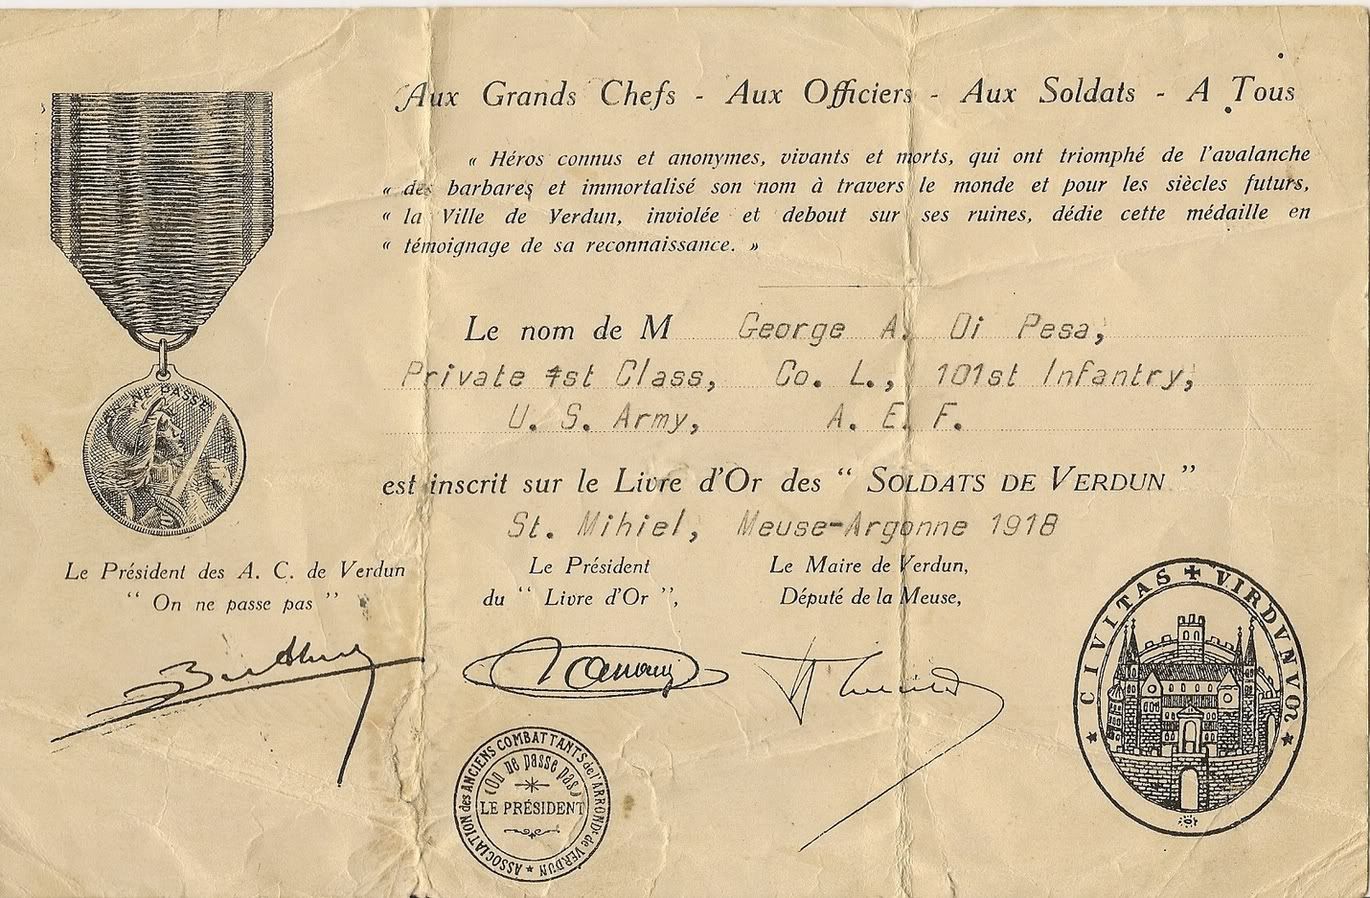 Aux Grands Chefs - Aux Officiers - Aux Soldats - A Tous
« Héros connus et anonymes, vivants et morts, qui ont triomphé de l'avalanche
« des barbares et immortalisé son nom à travers le monde et pour les siècles futurs,
« la Ville de Verdun, inviolée et debout sur ses ruines, dédie cette médaille en
« témoignage de sa reconnaissance. »
Le nom de M George A. Di Pesa,
Private 1st Class, Co. L., 101st Infantry,
U. S. Army, A. E. F.
est inscrit sur le Livre d'Or des “ SOLDATS DE VERDUN ”
St. Mihiel, Meuse-Argonne 1918
NE PASSE
Le Président des A. C. de Verdun
“ On ne passe pas ”
Le Président
du “ Livre d'Or ”,
Le Maire de Verdun,
Député de la Meuse,
ASSOCIATION des ANCIENS COMBATTANTS de l'ARRONDt de VERDUN
(On ne passe pas)
LE PRÉSIDENT
CIVITAS VIRDVNVM